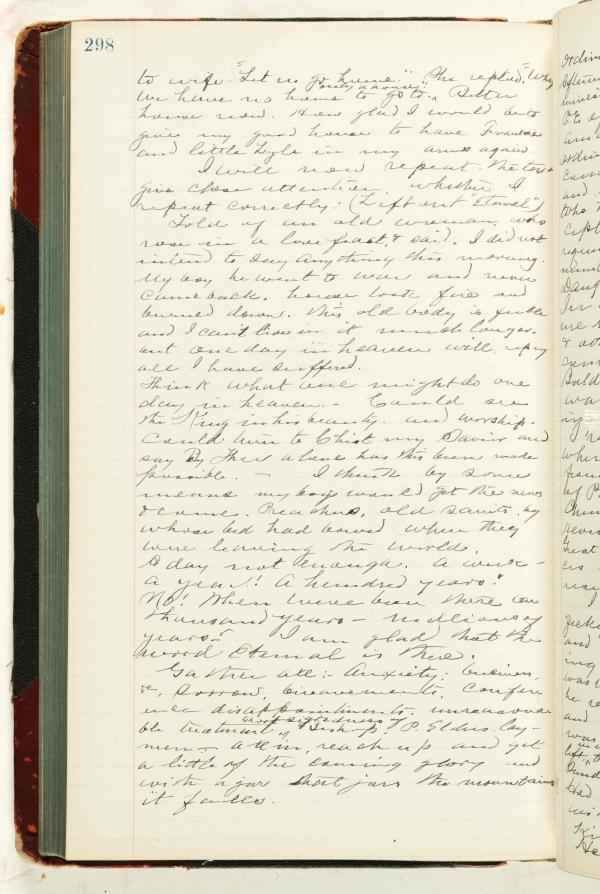 298
to wife "Let us go home." She replied, "Why
only a house,"
we have no home to go to," Better
house now. How glad I would be to
give my good house to have Frances
and little Lyle in my arms again.
I will now repeat the text
give close attention, whether I
repeat correctly: (Left out "Eternal")
Told of an old woman, who
rose in a love feast, & said, I did not
intend to say anything this morning.
My boy he went to war and never
came back. house took fire and
burned down. This old body is feeble
and I can't live in it much longer.
but one day in heaven will repay
all I have suffered.
Think what one might do one
day in heaven. - Could see
the King in his beauty. and worship.
Could turn to Christ my Savior and
say By Thee alone has this been made
possible. - I think by some
means my boy would get the news
& come. Preachers, old saints, by
whose bed had bowed when they
were leaving the world.
A day not enough. A week -
a year!! A hundred years!
No! When we've been there ten
thousand years - millions of
years! I am glad that the
word Eternal is there.
Gather all:- Anxiety; business,
&c, Sorrow, bereavements, Confer-
ence disappointments, unreasona-
shortsightedness of
ble treatment of Bishop, P. Elders, lay-
men - All in, reach up and get
a little of the coming glory and
with a jar that jars the mountains
"it falls.